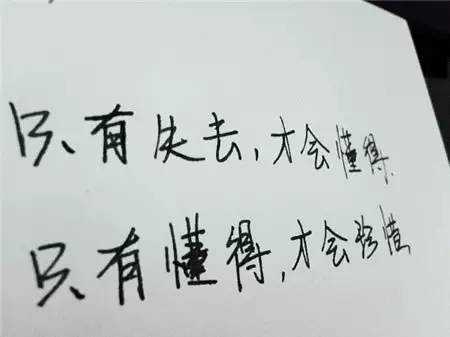 只有失去,才会懂得.
只有懂得,才会珍惜